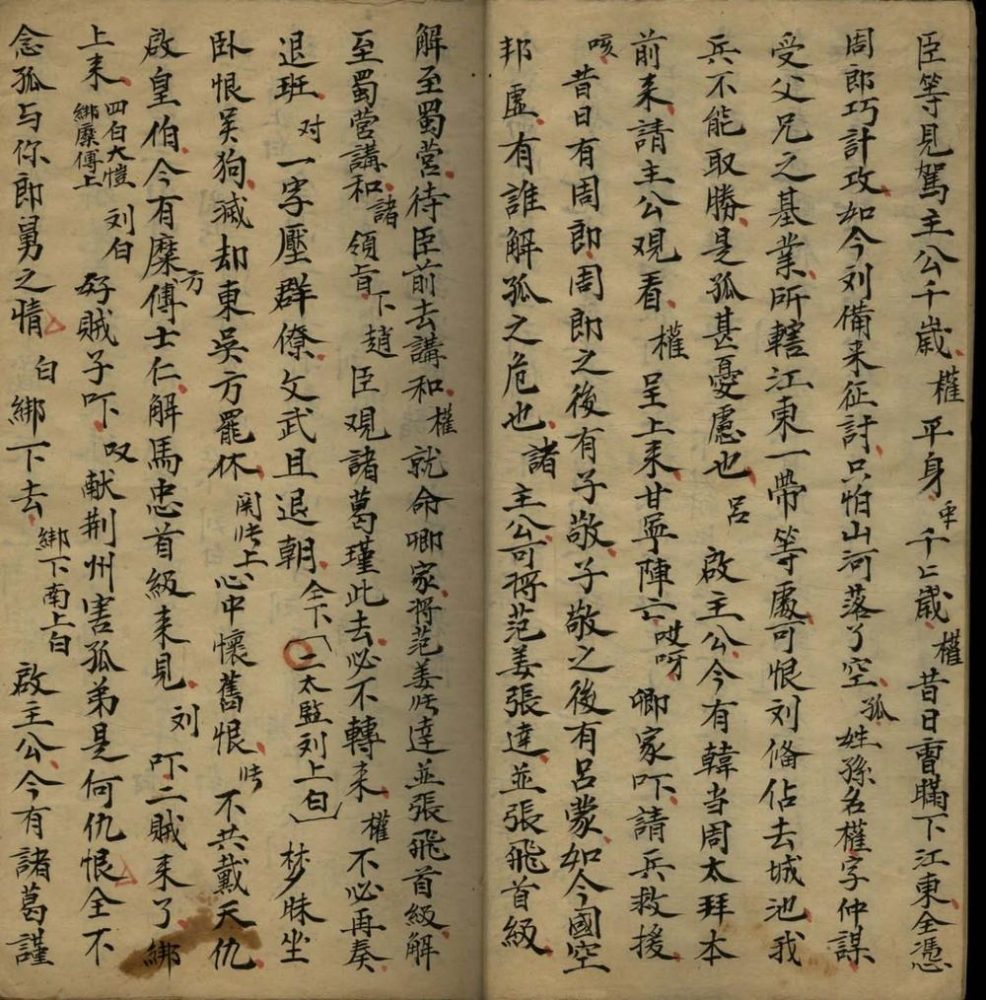 臣等見駕主公千歲 權 平身 卒 千〻歲 權 昔日曹瞞下江東全憑
周郎巧計攻如今刘備来征討只怕山河落了空 孤 姓孫名權字仲謀
受父兄之基業所轄江東一帶等處可恨刘俻佔去城池我
兵不能取勝是孤甚憂慮也 呂 啟主公今有韓当周太拜本
前来請主公观看 權 呈上来甘寕陣亡 哎呀 卿家吓請兵救援
咳 昔日有周郎周郎之後有子敬子敬之後有呂蒙如今國空
邦虛有誰解孤之危也 諸 主公可将范姜張達並張飛首級
解至蜀营待臣前去講和 權 就命卿家将范姜张達並張飛首級解
至蜀营講和 諸 領旨 下 趙 臣观諸葛瑾此去必不轉来 權 不必再奏
退班 对 一字壓群僚文武且退朝 仝下 二太監刘上白 梦昧坐
卧恨吴狗滅却東吳方罷休 関张上 心中懷舊恨 张 不共戴天仇
啟皇伯今有糜方傅士仁解馬忠首級来見 刘 吓二賊来了綁
上来 四白大愷綁糜傅上 刘白 好賊子吓 叹 献荆州害孤弟是何仇恨全不
念孤与你郎舅之情 白 綁下去 綁下南上白 啟主公今有諸葛謹